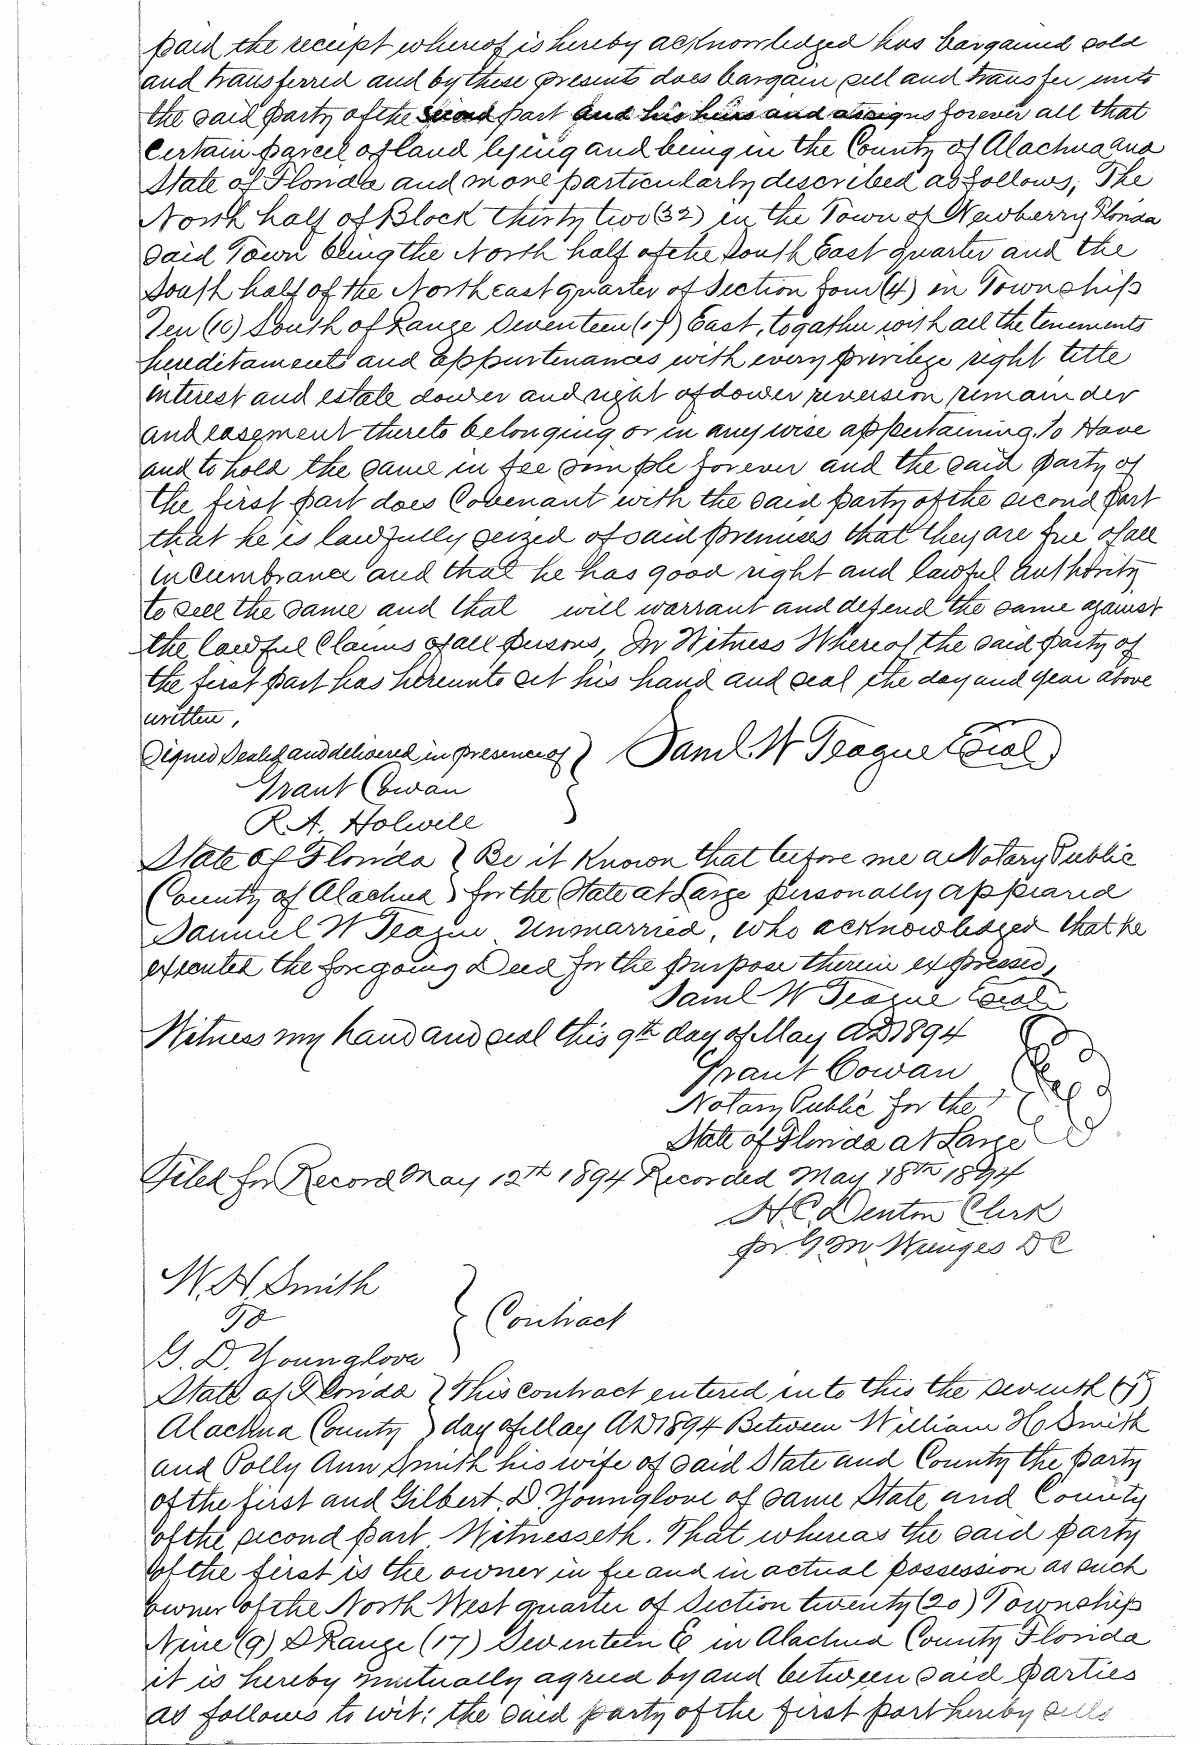 paid the receipt whereof is hereby acknowledged has bargained sold
and transferred and by these presents does bargain sell and transfer unto
the said party of the second part and his heirs and assigns forever all that
certain parcel of land lying and being in the County of Alachua and
State of Florida and more particularly described as follows, The
North half of Block thirty two (32) in the Town of Newberry Florida
said Town being the North half of the South East quarter and the
South half of the North east quarter of Section four (4) in Township
Ten (10) South of Range Seventeen (17) East, togather with all the tenements
hereditaments and appurtenances with every privilege right title
interest and estate dower and right of dower reversion remainder
and easement thereto belonging or in any wise appertaining. To Have
and to hold the same in fee simple forever and the said party of
the first part does Covenant with the said party of the second part
that he is lawfully seized of said premises that they are free of all
incumbrance and that he has good right and lawful authority
to sell the same and that will warrant and defend the same against
the lawful Claims of all persons, In Witness Whereof the said party of
the first part has hereunto set his hand and seal the day and year above
written,
Signed Sealed and delivered in presence of } Saml. W Teague (Seal)
Grant Cowan
R. A. Holwell
State of Florida } Be it Known that before me a Notary Public
County of Alachua } for the State at Large personally appeared
Samuel W Teague Unmarried, who acknowledged that he
executed the foregoing Deed for the purpose therein expressed,
Saml W Teague (Seal)
Witness my hand and seal this 9th day of May AD 1894
Grant Cowan
Notary Public for the
State of Florida at Large
Filed for Record May 12th 1894 Recorded May 18th 1894
H. C. Denton Clerk
pr. G. M. DC
W. H. Smith
To } Contract
G. D. Younglove
State of Florida } This contract entered into this the seventh (7)
Alachua County } day of May AD 1894 Between William H Smith
and Polly Ann Smith his wife of said State and County the party
of the first and Gilbert. D. Younglove of same State and County
of the second part Witnesseth. That whereas the said party
of the first is the owner in fee and in actual possession as such
owner of the North West quarter of Section twenty (20) Township
Nine (9) S Range (17) Seventeen E in Alachua County Florida
it is hereby mutually agreed by and between said parties
as follows to wit: the said party of the first part hereby sells